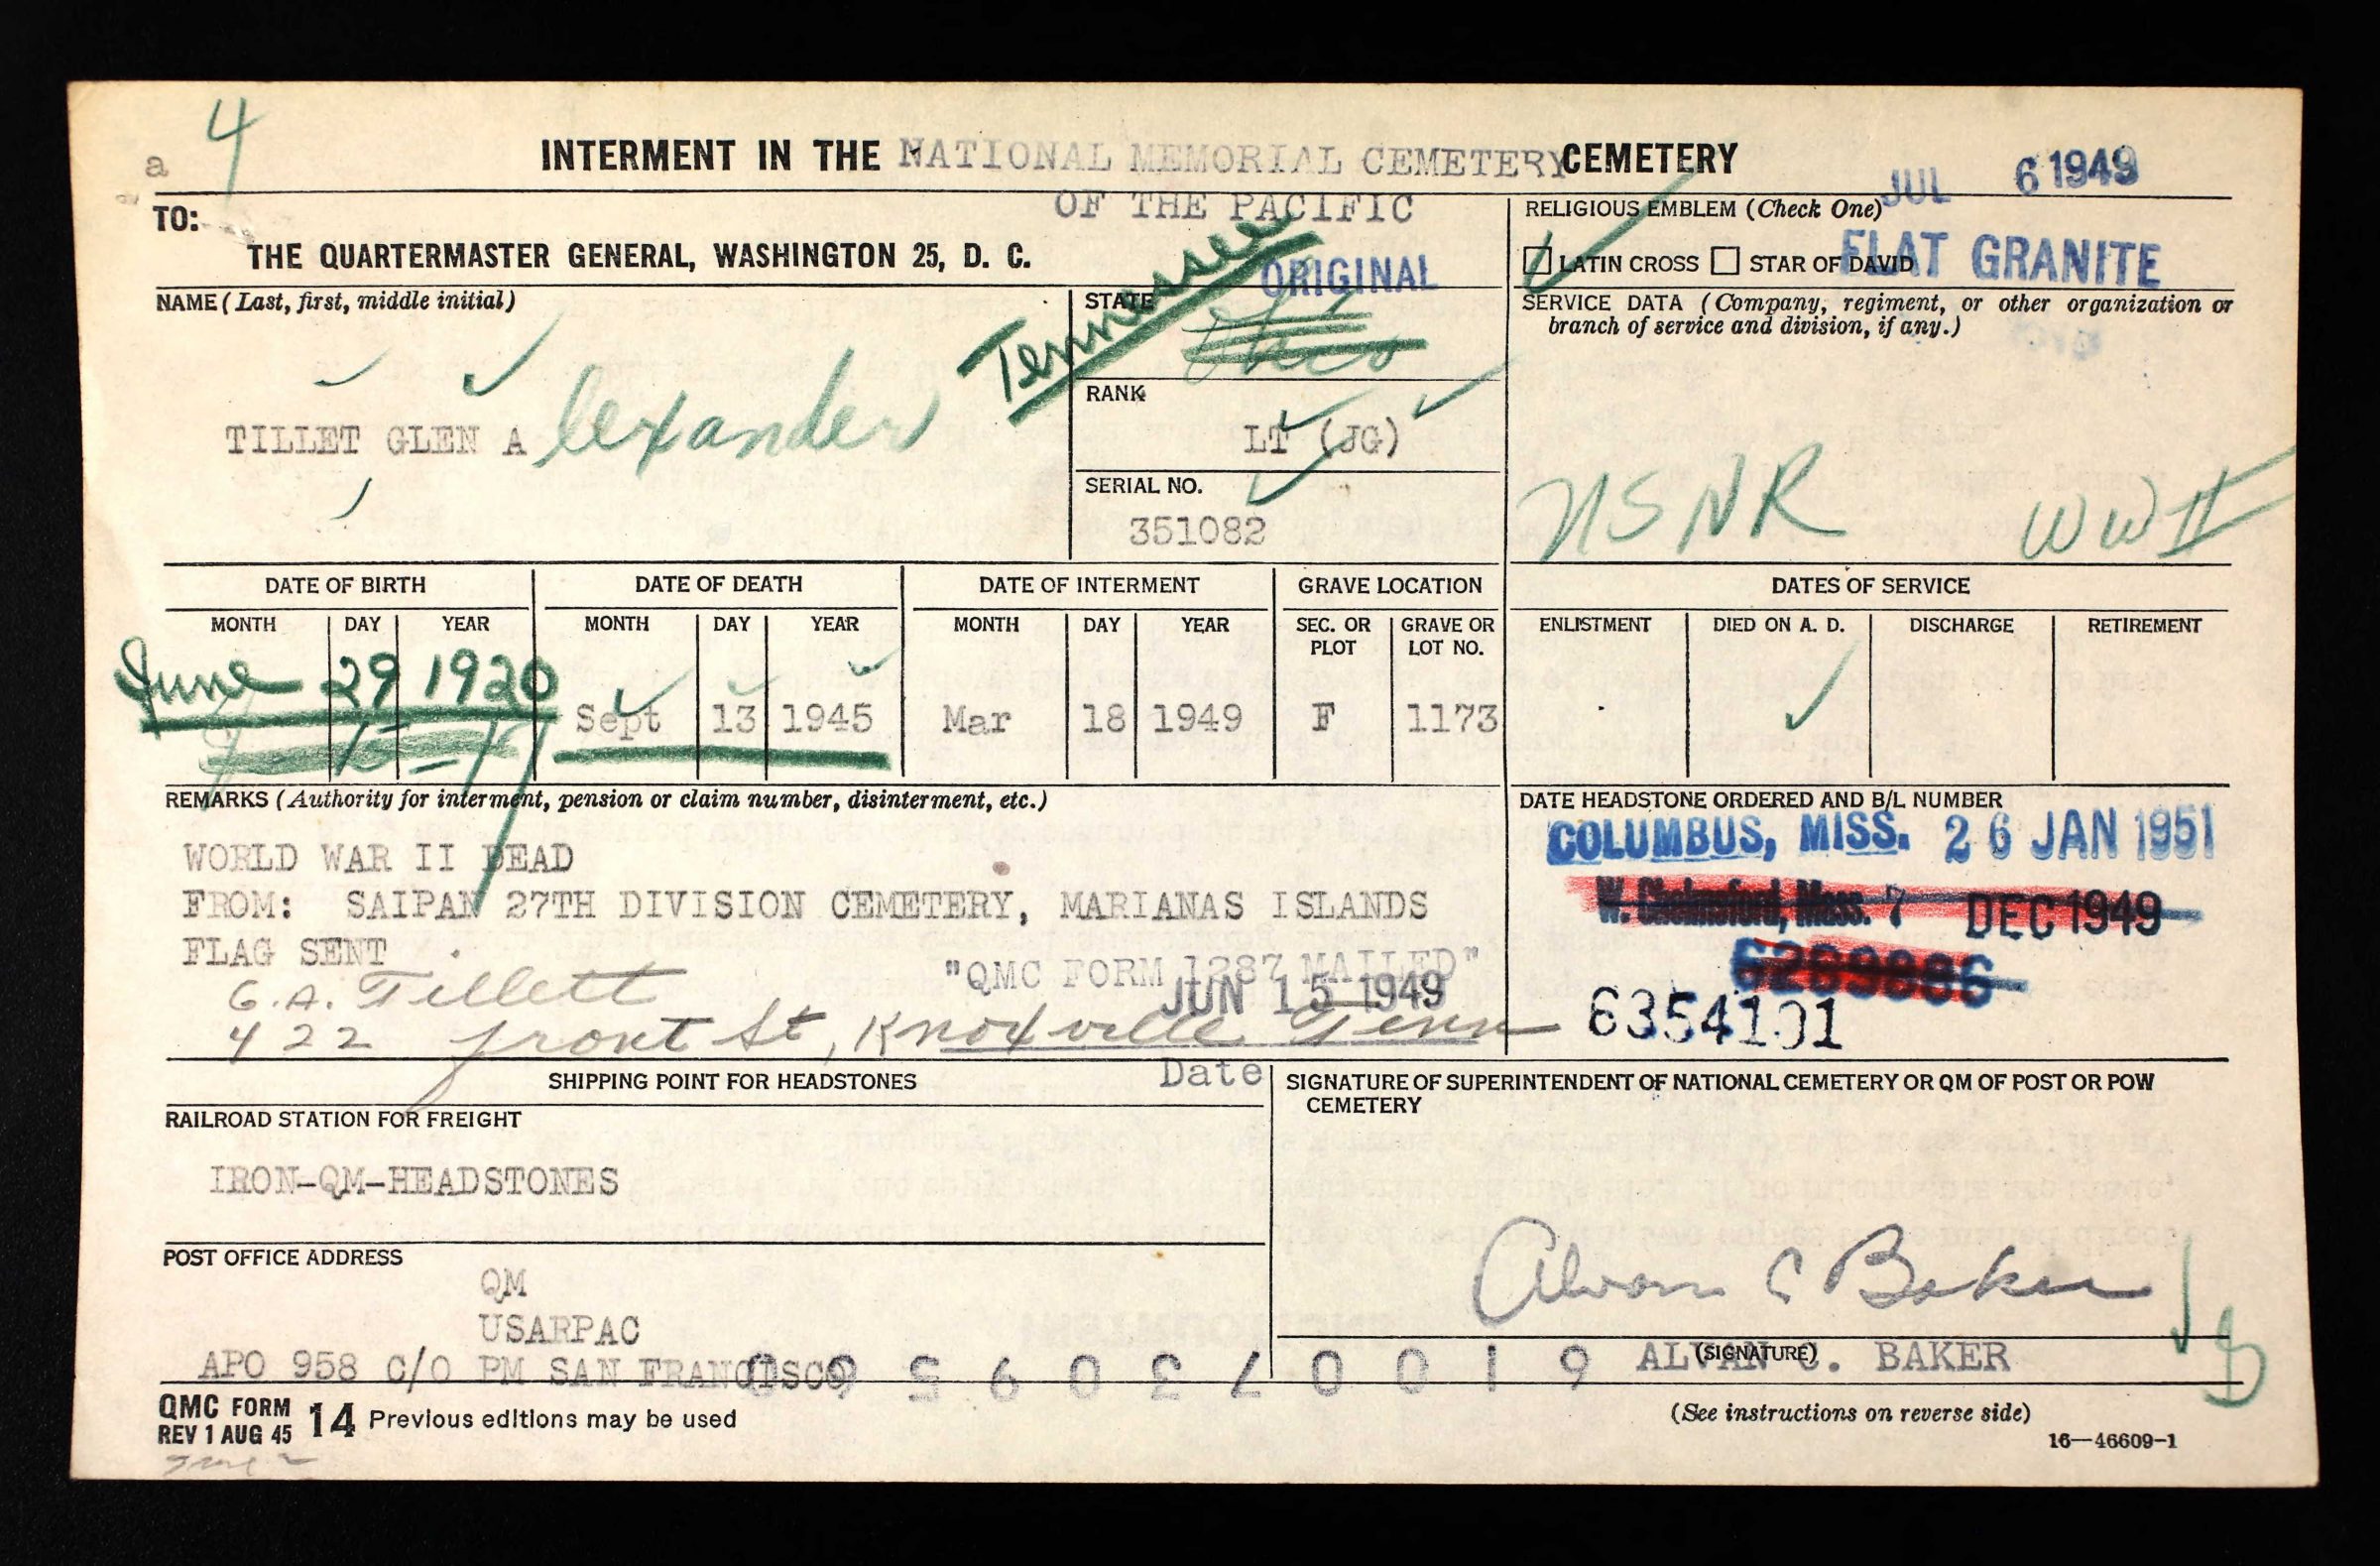 a 4
INTERMENT IN THE NATIONAL MEMORIAL CEMETERY CEMETERY
OF THE PACIFIC
JUL 6 1949
TO:
THE QUARTERMASTER GENERAL, WASHINGTON 25, D. C.
ORIGINAL
RELIGIOUS EMBLEM (Check One)
LATIN CROSS STAR OF DAVID
FLAT GRANITE
NAME (Last, first, middle initial)
TILLET GLEN Alexander
STATE
Tennessee
RANK
LT (JG)
SERIAL NO.
351082
SERVICE DATA (Company, regiment, or other organization or
branch of service and division, if any.)
USNR WW II
DATE OF BIRTH
MONTH DAY YEAR
June 29 1920
DATE OF DEATH
MONTH DAY YEAR
Sept 13 1945
DATE OF INTERMENT
MONTH DAY YEAR
Mar 18 1949
GRAVE LOCATION
SEC. OR PLOT
GRAVE OR LOT NO.
F 1173
DATES OF SERVICE
ENLISTMENT DIED ON A. D. DISCHARGE RETIREMENT
REMARKS (Authority for interment, pension or claim number, disinterment, etc.)
WORLD WAR II DEAD
FROM: SAIPAN 27TH DIVISION CEMETERY, MARIANAS ISLANDS
FLAG SENT
"QMC FORM 1287 MAILED"
JUN 15 1949
G.A. Tillett
422 front St, Knoxville Tenn
Date
DATE HEADSTONE ORDERED AND B/L NUMBER
COLUMBUS, MISS. 26 JAN 1951
W. Chelmsford, Mass. 7 DEC 1949
6354101
SHIPPING POINT FOR HEADSTONES
RAILROAD STATION FOR FREIGHT
IRON-QM-HEADSTONES
POST OFFICE ADDRESS
QM
USARPAC
APO 958 C/O PM SAN FRANCISCO
SIGNATURE OF SUPERINTENDENT OF NATIONAL CEMETERY OR QM OF POST OR POW
CEMETERY
Alvan C Baker
(SIGNATURE)
ALVAN C. BAKER
QMC FORM 14 Previous editions may be used
REV 1 AUG 45
(See instructions on reverse side)
16—46609-1